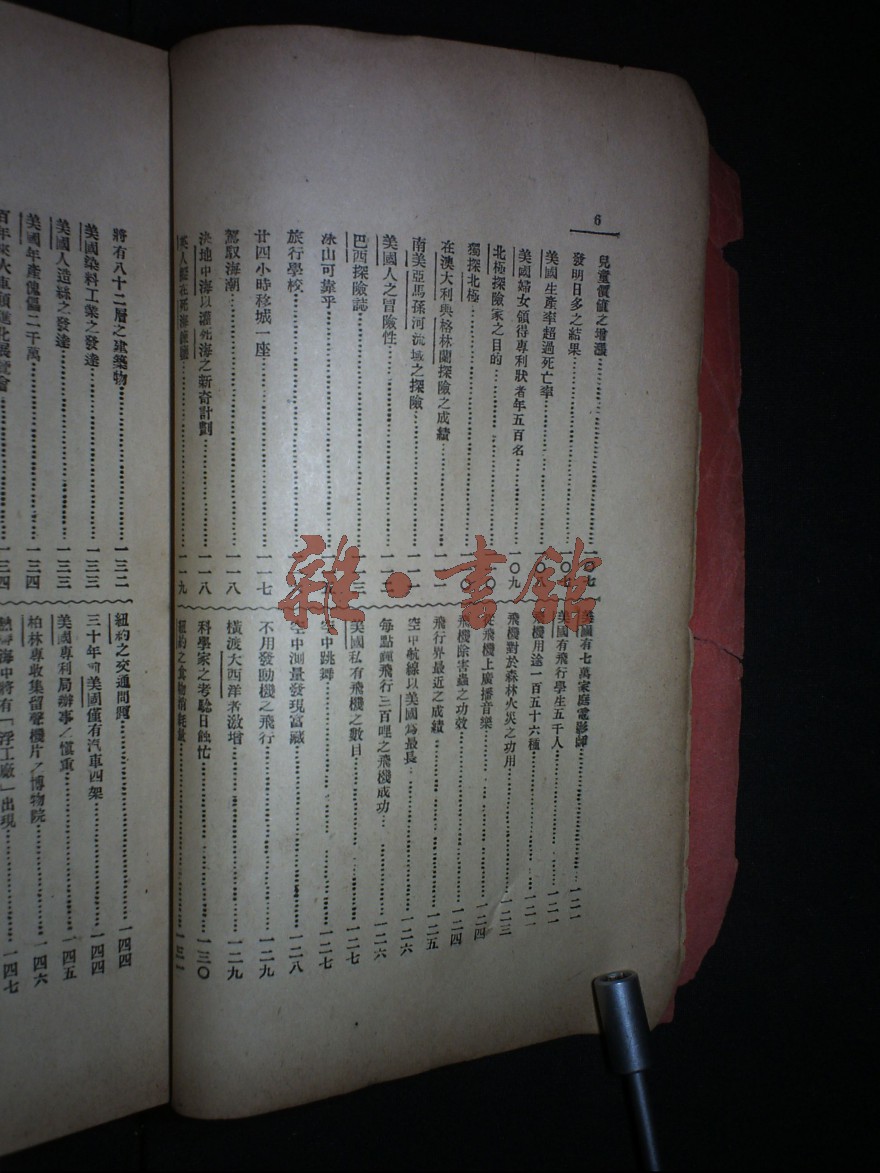 6
兒童價值之增漲 一〇七
發明日多之結果 一〇七
美國生產率超過死亡率 一〇八
美國婦女領得專利狀者年五百名 一〇九
北極探險家之目的
獨探北極
在澳大利與格林蘭探險之成績
南美亞馬孫河流域之探險
美國人之冒險性
巴西探險誌
冰山可靠乎
旅行學校
廿四小時移城一座 一一七
駕馭海潮 一一八
決地中海以灌死海之新奇計劃 一一八
一一九
美國有七萬家庭電影師 一二一
美國有飛行學生五千人 一二一
飛機用途一百五十六種 一二一
飛機對於森林火災之功用 一二三
從飛機上廣播音樂 一二四
飛機除害蟲之功效 一二四
飛行界最近之成績 一二五
空中航線以美國為最長 一二六
每點鐘飛行三百哩之飛機成功 一二六
美國私有飛機之數目 一二七
空中跳舞 一二七
空中測量發現富藏 一二八
不用發動機之飛行 一二九
橫渡大西洋者激增 一二九
科學家之考驗日蝕忙 一三〇
紐約之食物消耗量 一三一
將有八十二層之建築物 一三二
美國染料工業之發達 一三三
美國人造絲之發達 一三三
美國年產傀儡二千萬 一三四
一三四
紐約之交通問題 一四四
三十年前美國僅有汽車四架 一四四
美國專利局辦事之慎重 一四五
柏林專收集留聲機片之博物院 一四六
海中將有「浮工廠」出現 一四七
雜·書館